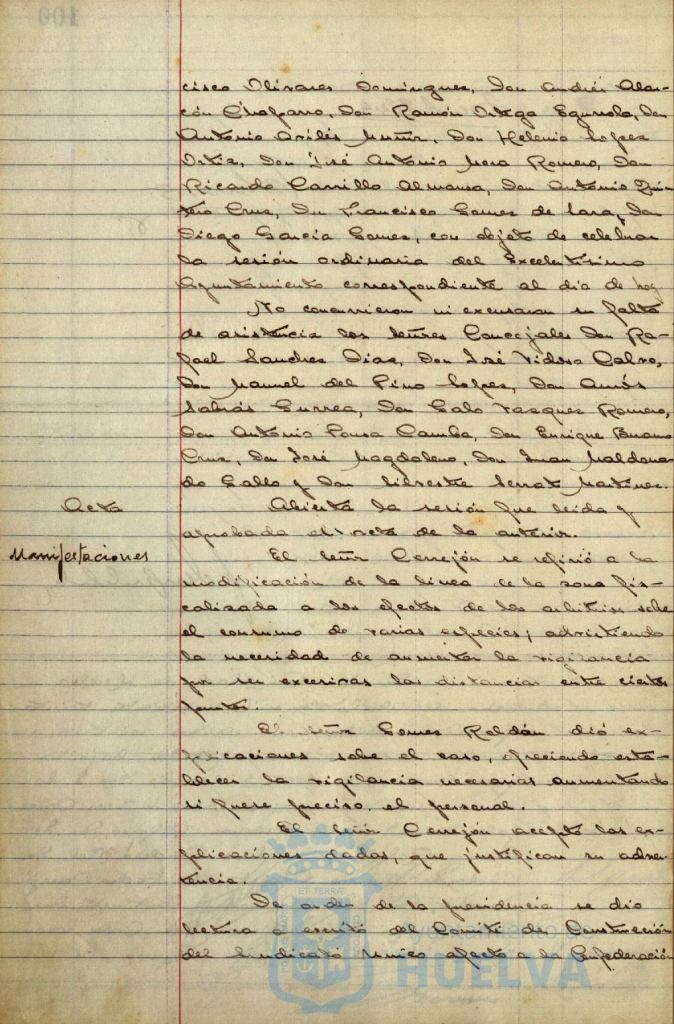 cisco Olivares Dominguez, Don Andrés Alar-
cón Chaparro, Don Ramón Ortega Egurrola, Don
Antonio Avilés Muñiz, Don Helenio Lopez
Ortiz, Don José Antonio Mora Romero, Don
Ricardo Carrillo Almansa, Don Antonio Quin-
tero Cruz, Don Francisco Gomez de Lara y Don
Diego García Gomez, con objeto de celebrar
la sesión ordinaria del Excelentisimo
Ayuntamiento correspondiente al dia de hoy
No concurrieron ni excusaron su falta
de asistencia los Señores Concejales Don Ra-
fael Sanchez Diaz, Don José Vidosa Calvo,
Don Manuel del Pino Lopez, Don Amós
Sabrás Gurrea, Don Galo Vazquez Romero,
Don Antonio Pousa Camba, Don Enrique Bueno
Cruz, Don José Magdaleno, Don Juan Maldona-
do Gallo y Don Silvestre Serrat Martinez.
Acta
Abierta la sesión fue leida y
aprobada el acta de la anterior.
Manifestaciones
El Señor Cerrejón se refirió a la
modificación de la linea de la zona fis-
calizada a los efectos de los arbitrios sobre
el consumo de varias especies, advirtiendo
la necesidad de aumentar la vigilancia
por ser excesivas las distancias entre ciertos
puntos.
El Señor Gomez Roldán dió ex-
plicaciones sobre el caso, ofreciendo esta-
blecer la vigilancia necesarias aumentando
si fuere preciso, el personal.
El Señor Cerrejón aceptó las ex-
plicaciones dadas, que justifican su adver-
tencia.
De orden de la presidencia se dio
lectura a escrito del Comité de Construcción
del Sindicato Unico afecto a la Confederación
ET TERRA
Ayuntamiento
HUELVA